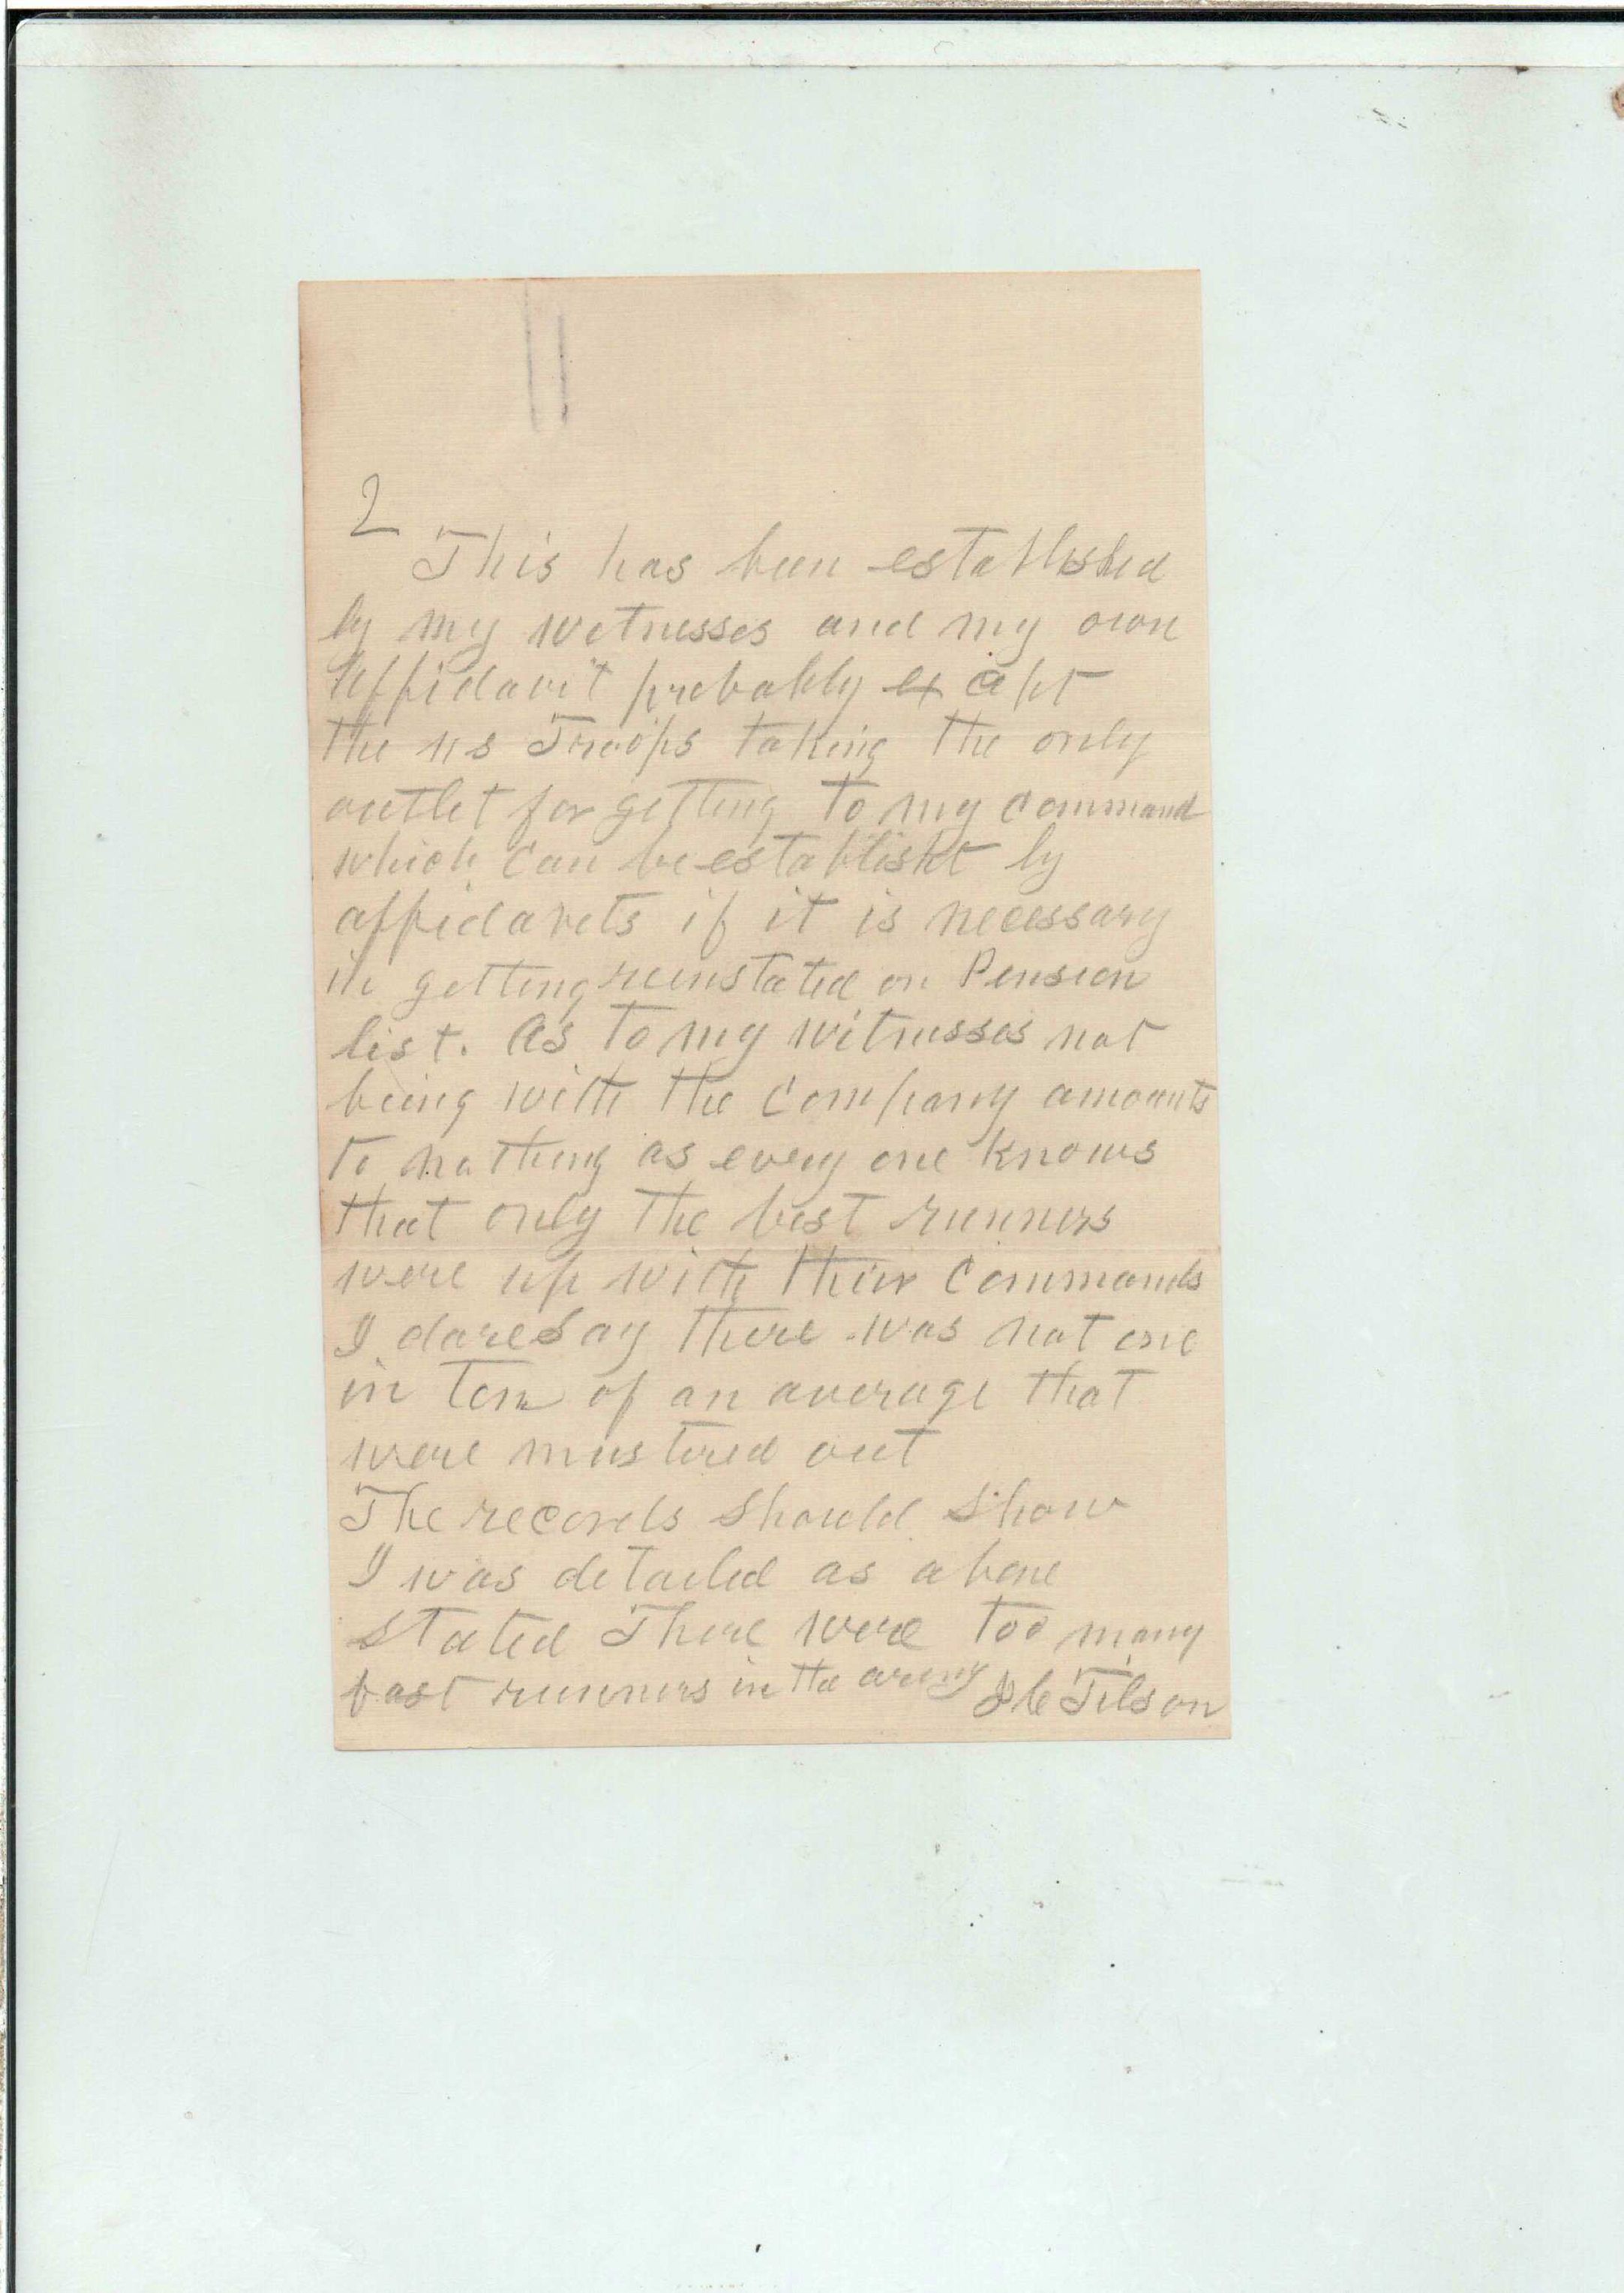 2
This has been established
by my wetnesses and my own
affidavit probably ex cept
the us Troops taking the only
outlet for getting to my command
which can be establisht by
affidavets if it is necessary
in getting reinstated on Pension
list. As to my witnesses not
being with the Company amounts
to nothing as every one knows
that only the best runners
were up with their Commands
I daresay there was not one
in ten of an average that
were mustered out
The records should show
I was detailed as above
stated There were too many
fast runners in the army
Tilson